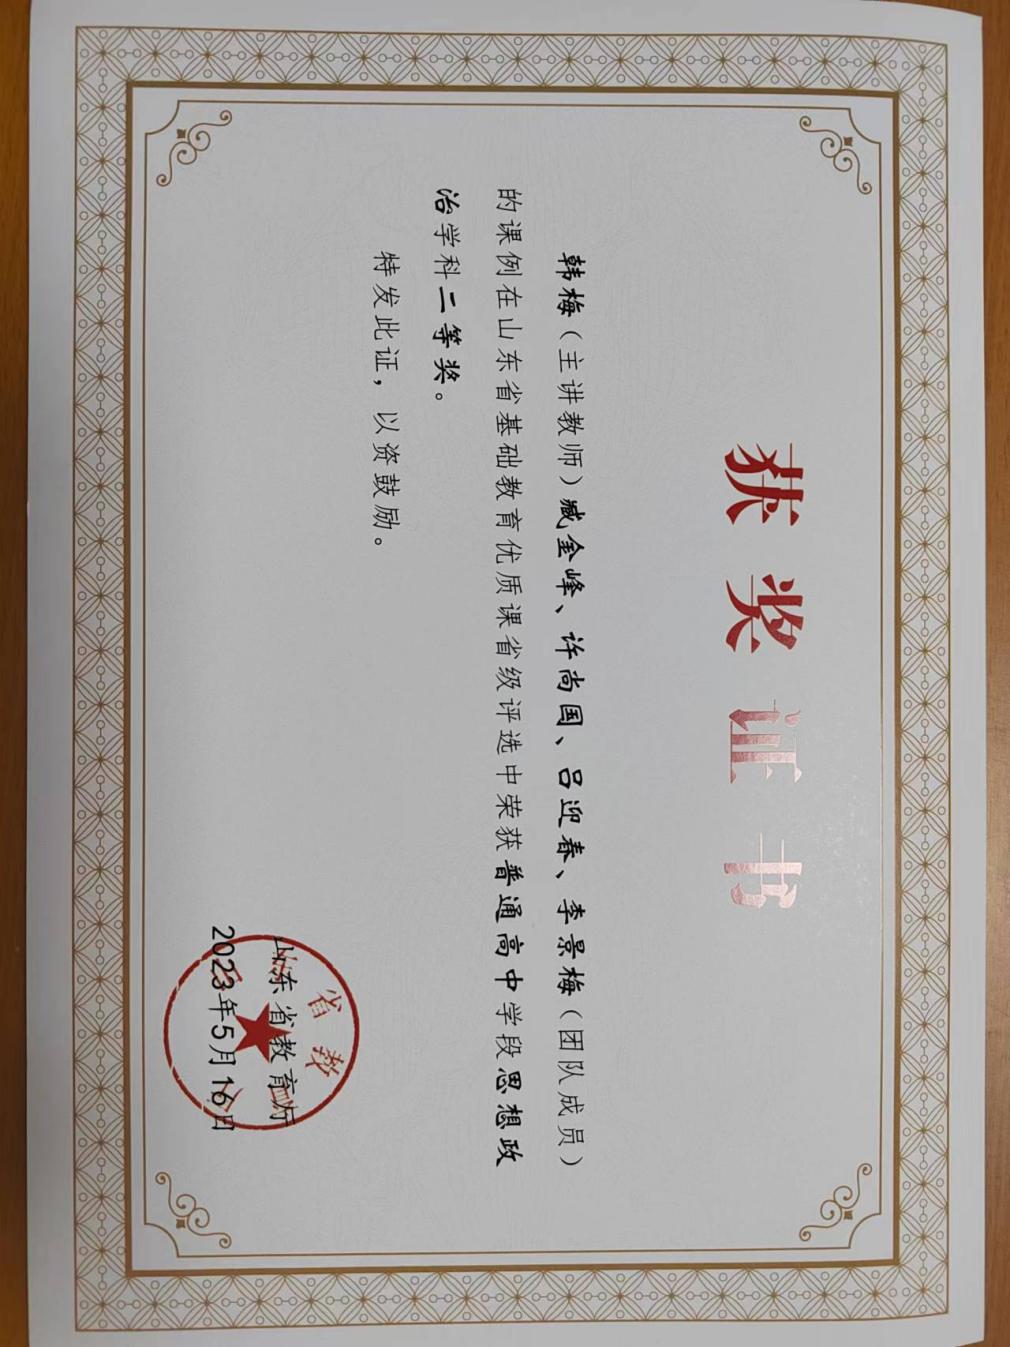 获奖证书
韩梅（主讲教师）臧金峰、许尚国、吕迎春、李景梅（团队成员）
的课例在山东省基础教育优质课省级评选中荣获普通高中学段思想政
治学科二等奖。
特发此证，以资鼓励。
山东省教育厅
2023年5月16日
省教